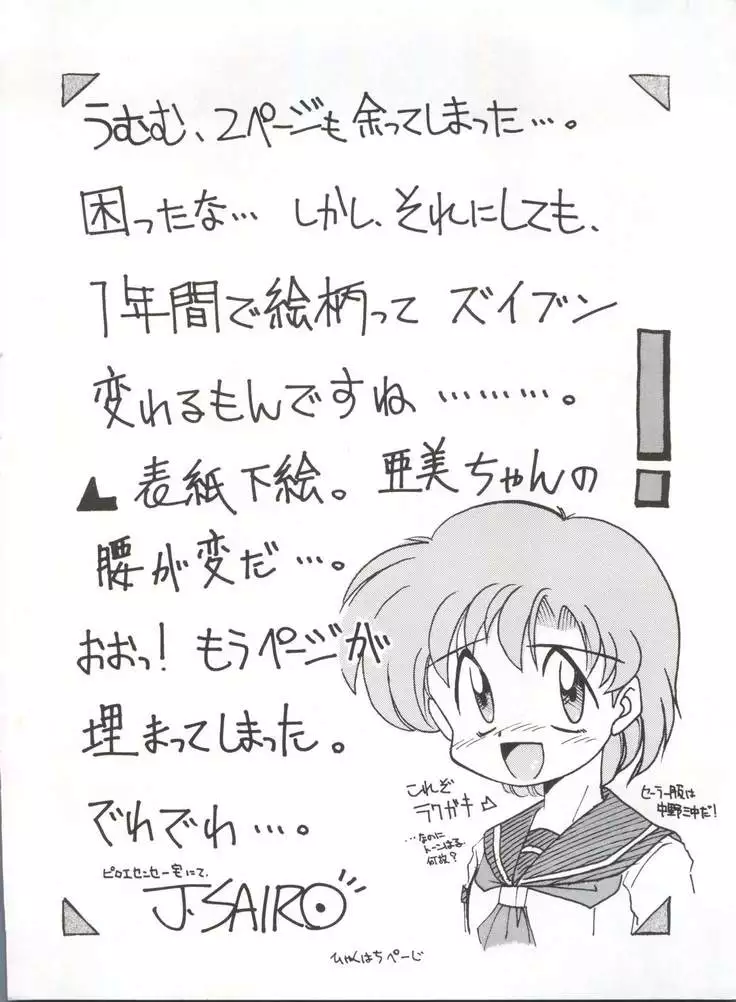 うむむ、2ページも余ってしまった…。
困ったな… しかし、それにしても、
1年間で絵柄って ズイブン
変れるもんですね………。
表紙下絵。亜美ちゃんの
腰が変だ…。
おおっ!もうページが
埋まってしまった。
でわでわ…。
ピロエセンセー宅にて、
J.SAIRO
これぞ
ラクガキ
…なのに
トーンはる
何故?
セーラー服は
中野三中だ!
ひゃくはちぺーじ